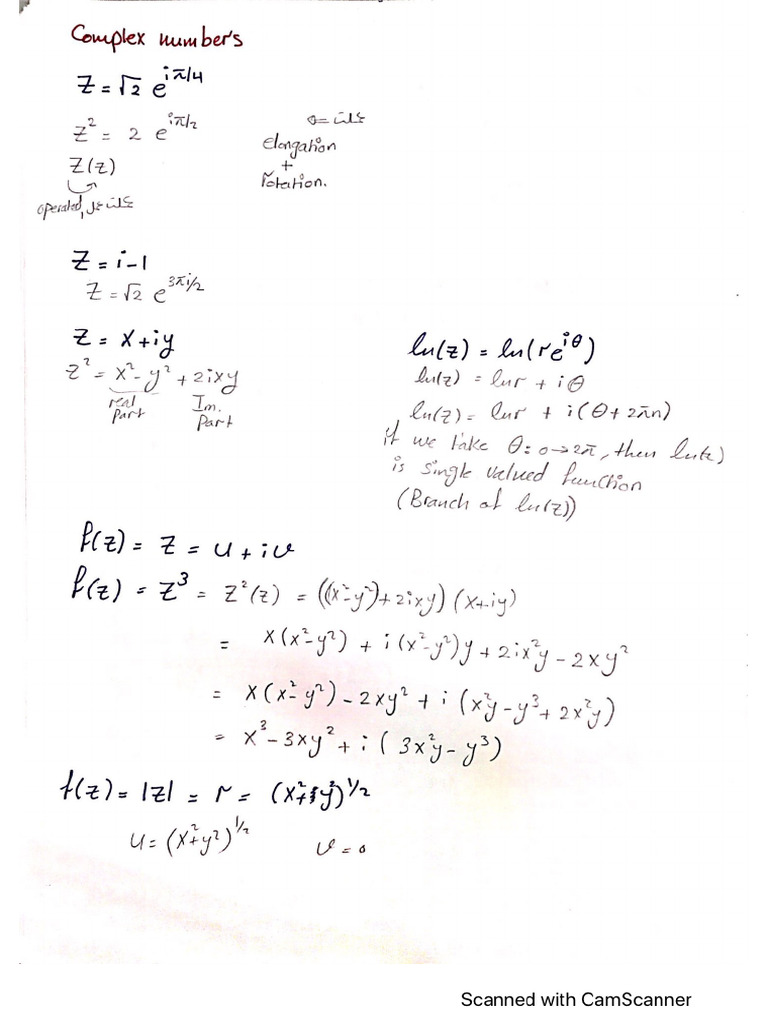 Complex numbers
Z = √2 e^{iπ/4}
Z² = 2 e^{iπ/2}
Z(z)
operated, عملت على
عملت ⇐
Elongation
+
rotation.
Z = i-1
Z = √2 e^{3πi/2}
Z = x+iy
Z² = x²-y² + 2ixy
real part
Im. Part
ln(z) = ln(re^{iθ})
ln(z) = lnr + iθ
ln(z) = lnr + i(θ+2πn)
if we take θ: 0→2π, then ln(z)
is single valued function
(Branch of ln(z))
f(z) = Z = u + iv
f(z) = Z³ = Z²(z) = ((x²-y²)+2ixy)(x+iy)
= x(x²-y²) + i(x²-y²)y + 2ix²y - 2xy²
= x(x²-y²) - 2xy² + i(x²y-y³+2x²y)
= x³-3xy² + i(3x²y-y³)
f(z) = |z| = r = (x²+y²)^{1/2}
u = (x²+y²)^{1/2} v = 0
Scanned with CamScanner